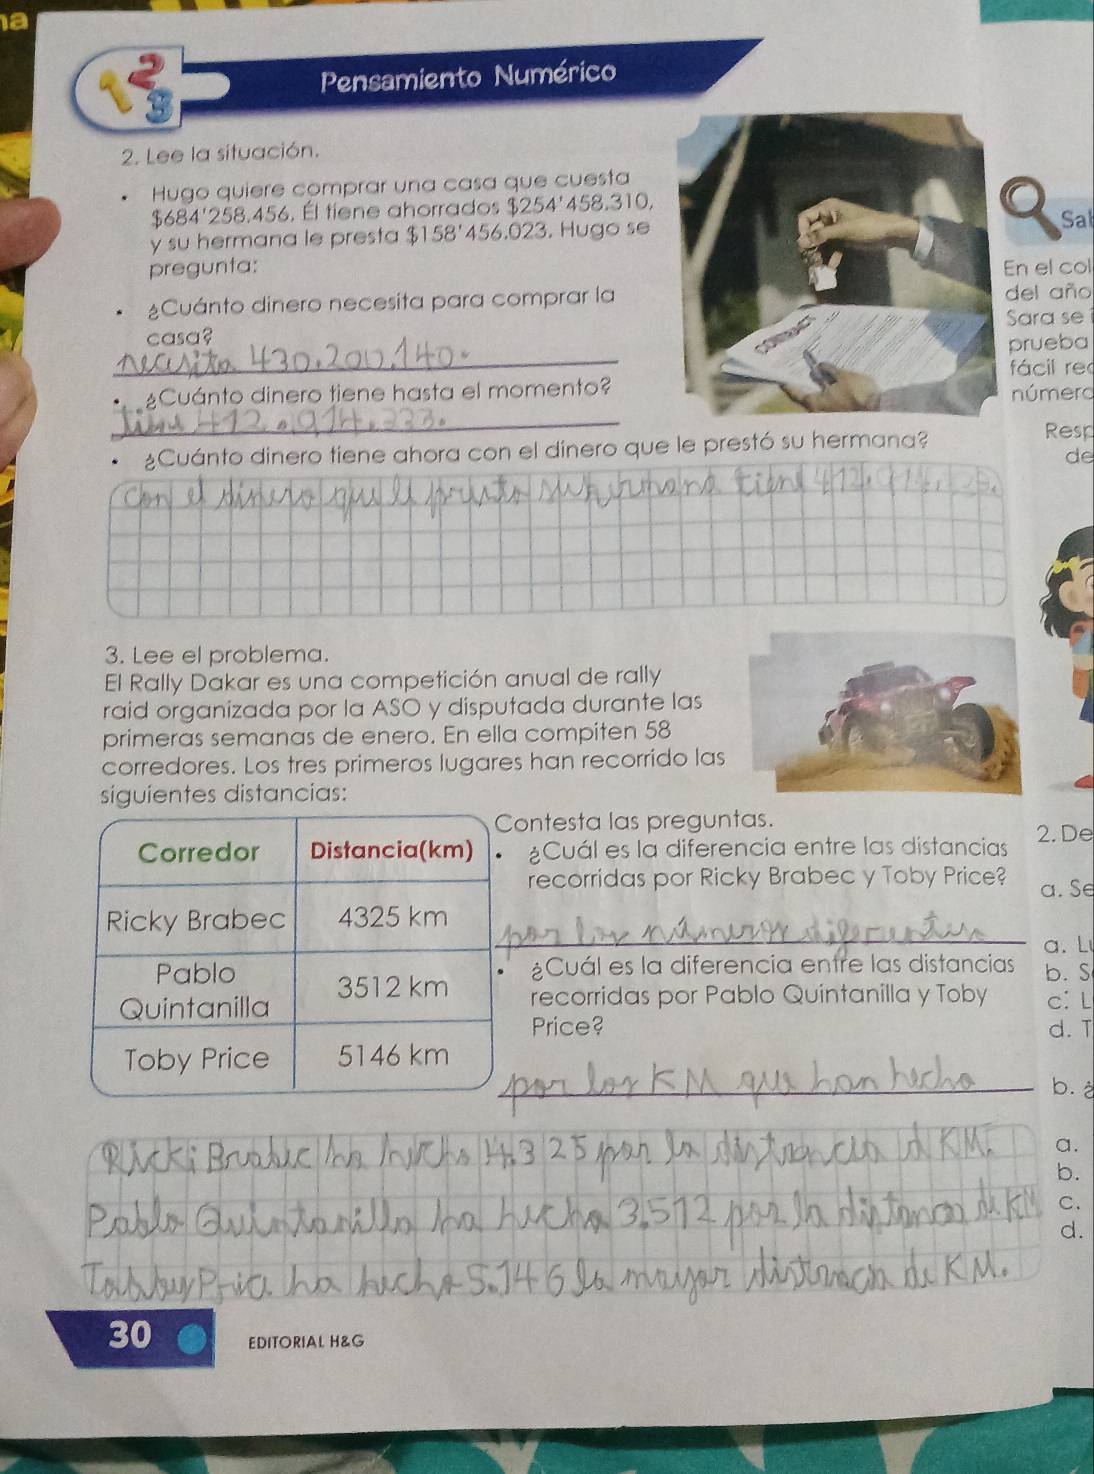 Pensamiento Numérico
2. Lee la situación.
• Hugo quiere comprar una casa que cuesta
$684'258,456, Él tiene ahorrados $254'458,310,
y su hermana le presta $158'456,023. Hugo se
pregunta:
• ¿Cuánto dinero necesita para comprar la
casa?
necesita 430.200.140.
• ¿Cuánto dinero tiene hasta el momento?
tiene 412.914.333.
• ¿Cuánto dinero tiene ahora con el dinero que le prestó su hermana?
Con el dinero que le presto su hermana tiene
3. Lee el problema.
El Rally Dakar es una competición anual de rally
raid organizada por la ASO y disputada durante las
primeras semanas de enero. En ella compiten 58
corredores. Los tres primeros lugares han recorrido las
siguientes distancias:
Corredor Distancia(km)
Ricky Brabec 4325 km
Pablo
Quintanilla 3512 km
Toby Price 5146 km
Contesta las preguntas.
• ¿Cuál es la diferencia entre las distancias
recorridas por Ricky Brabec y Toby Price?
por los números diferentes
• ¿Cuál es la diferencia entre las distancias
recorridas por Pablo Quintanilla y Toby
Price?
por los KM que han hecho
Ricki Brabec ha hecho 4.325 por la distancia d KM.
Pablo Quintanilla ha hecho 3.512 por la distancia de KM
ha hecho 5.146 la mayor distancia de KM.
30
EDITORIAL H&G
Sal
En el col
del año
Sara se i
prueba
fácil rec
número
Resp
de
2. De
a. Se
a. L
b. S
c. L
d. T
b. ¿
a.
b.
c.
d.